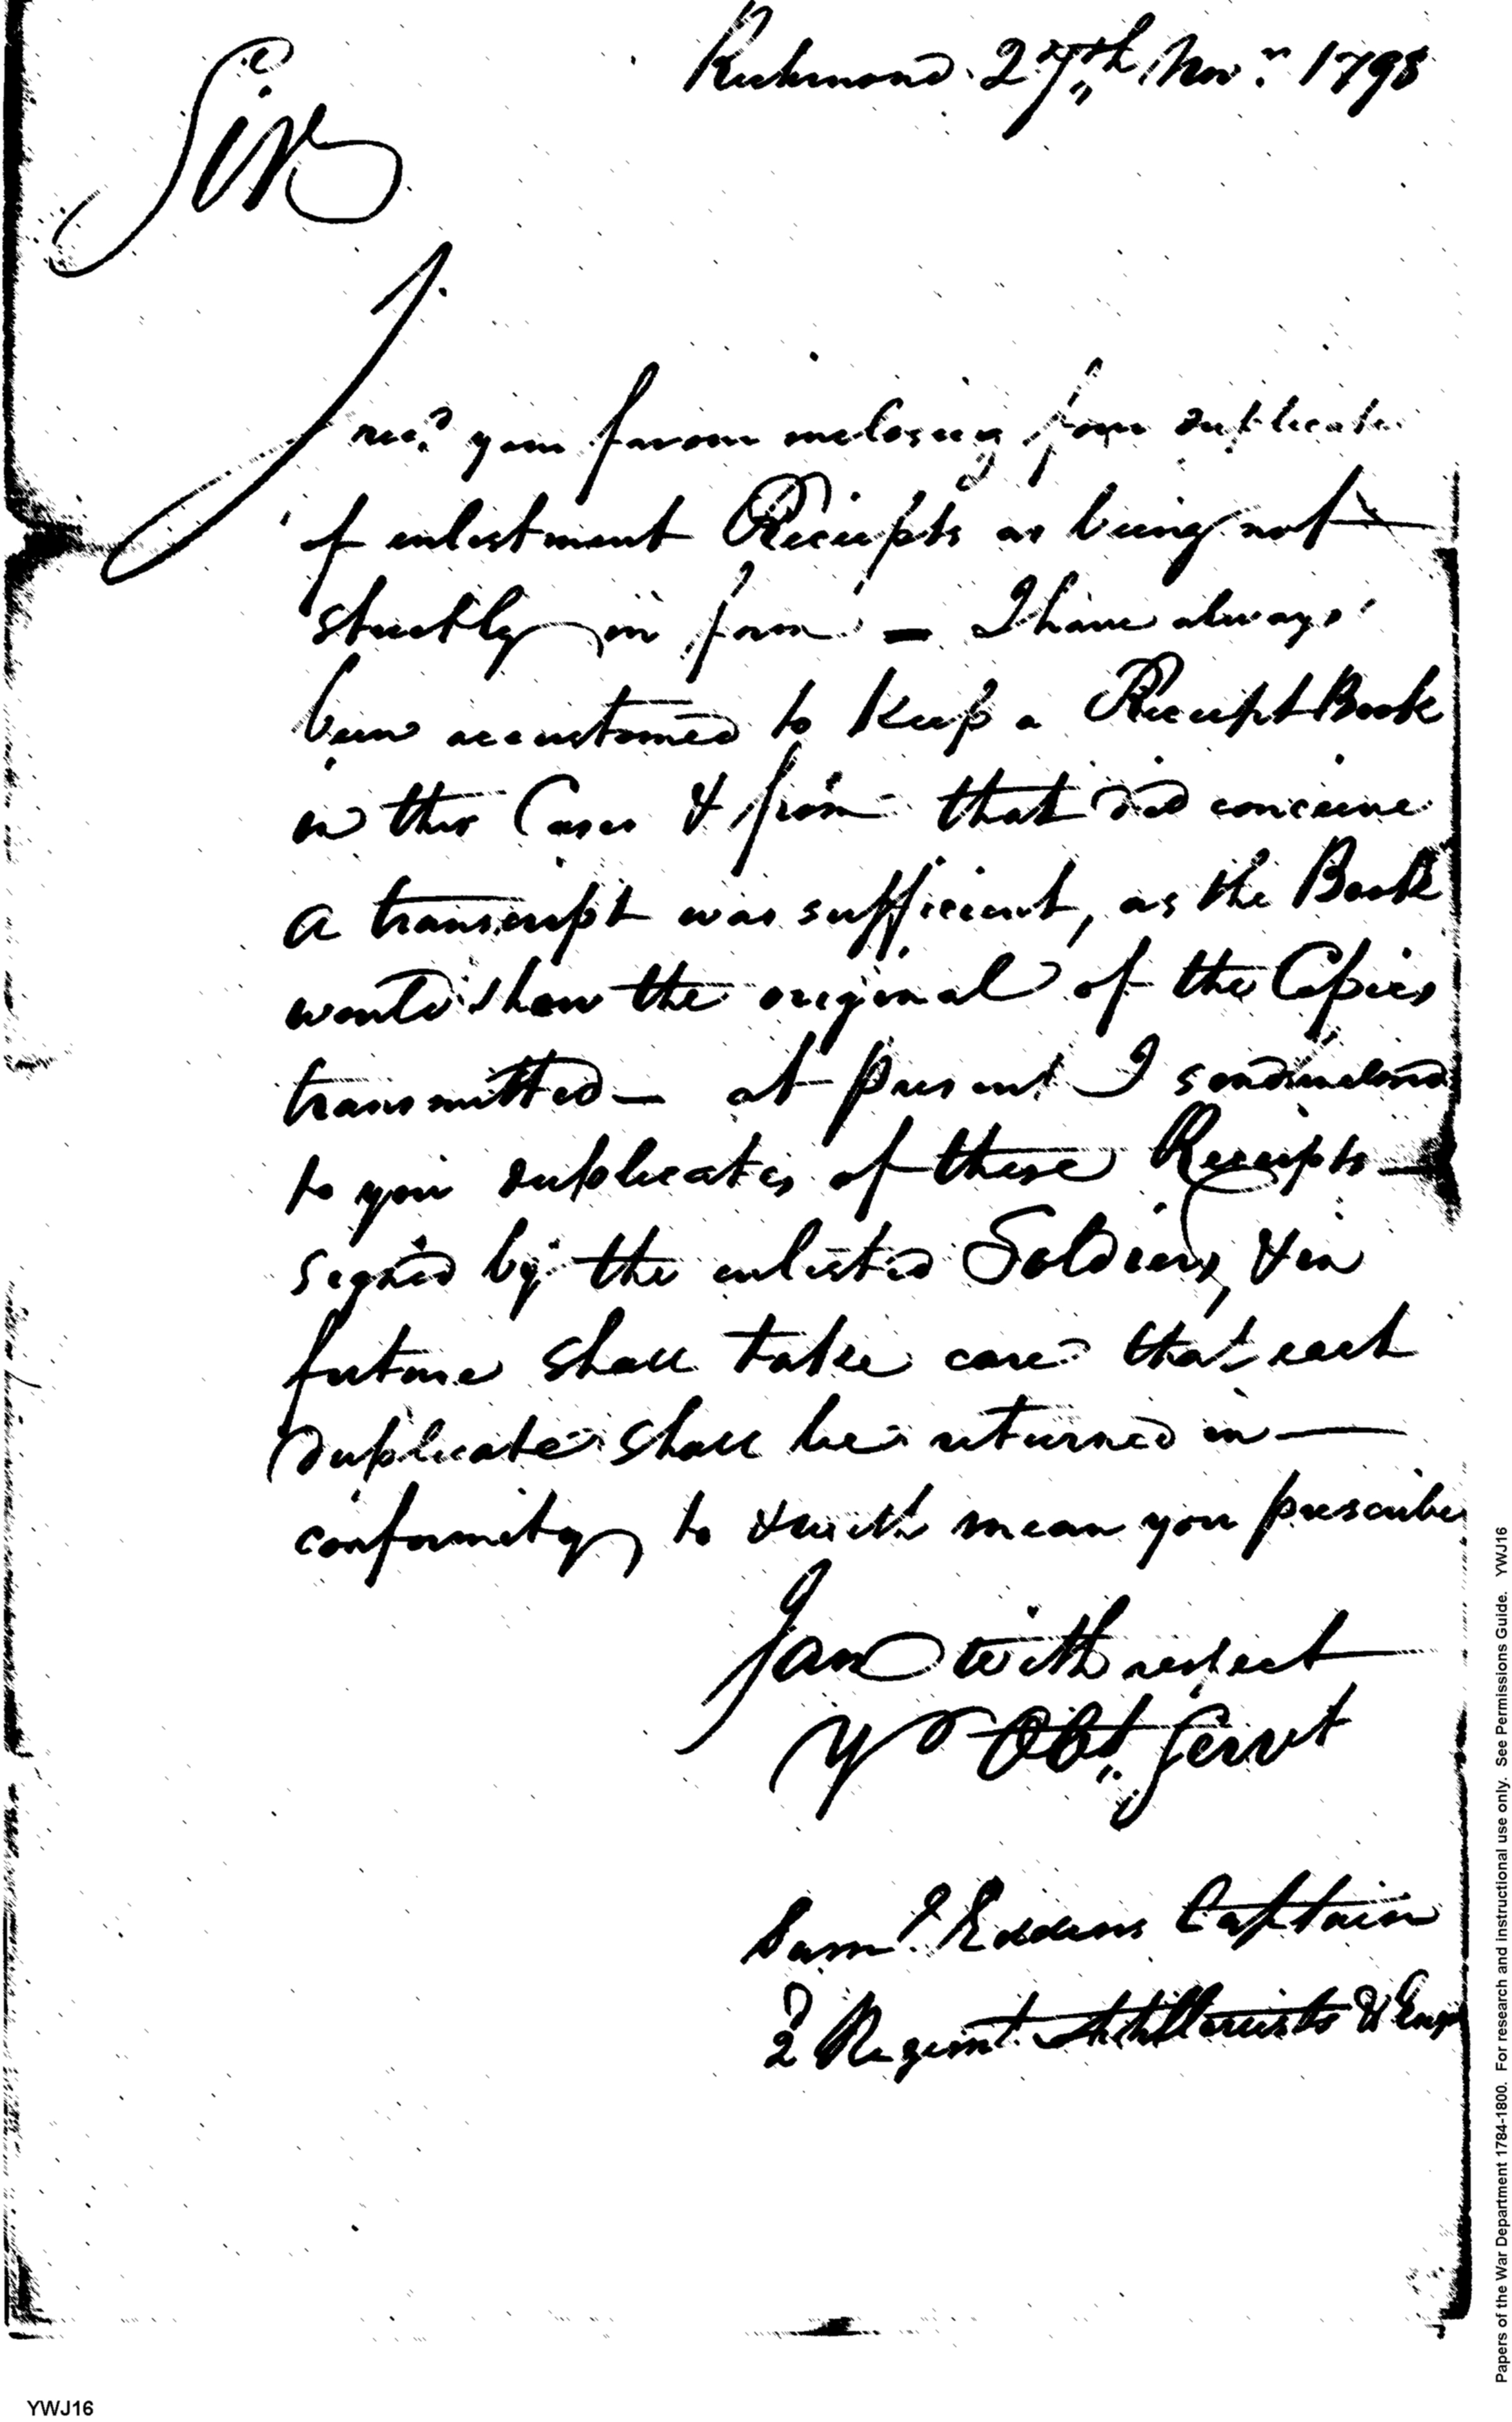 Richmond 27th Novr. 1798
Sir
I recd your favour inclosing four duplicates
of enlistment Receipts as being not
strictly in form — I have always
been accustomed to Keep a Receipt Book
in this Cases & from that did conceive
a transcript was sufficient, as the Book
would shew the original of the Copies
transmitted — at present I send inclosed
to you duplicates of these Receipts —
signed by the enlisted Soldiers, & in
future shall take care that each
duplicate shall be returned in —
conformity to mean you prescribe
I am with respect
Yr Obt. Servt
Saml Eddens Captain
2 Regimt. Artillerists & Eng
Papers of the War Department 1784-1800. For research and instructional use only. See Permissions Guide. YWJ16
YWJ16